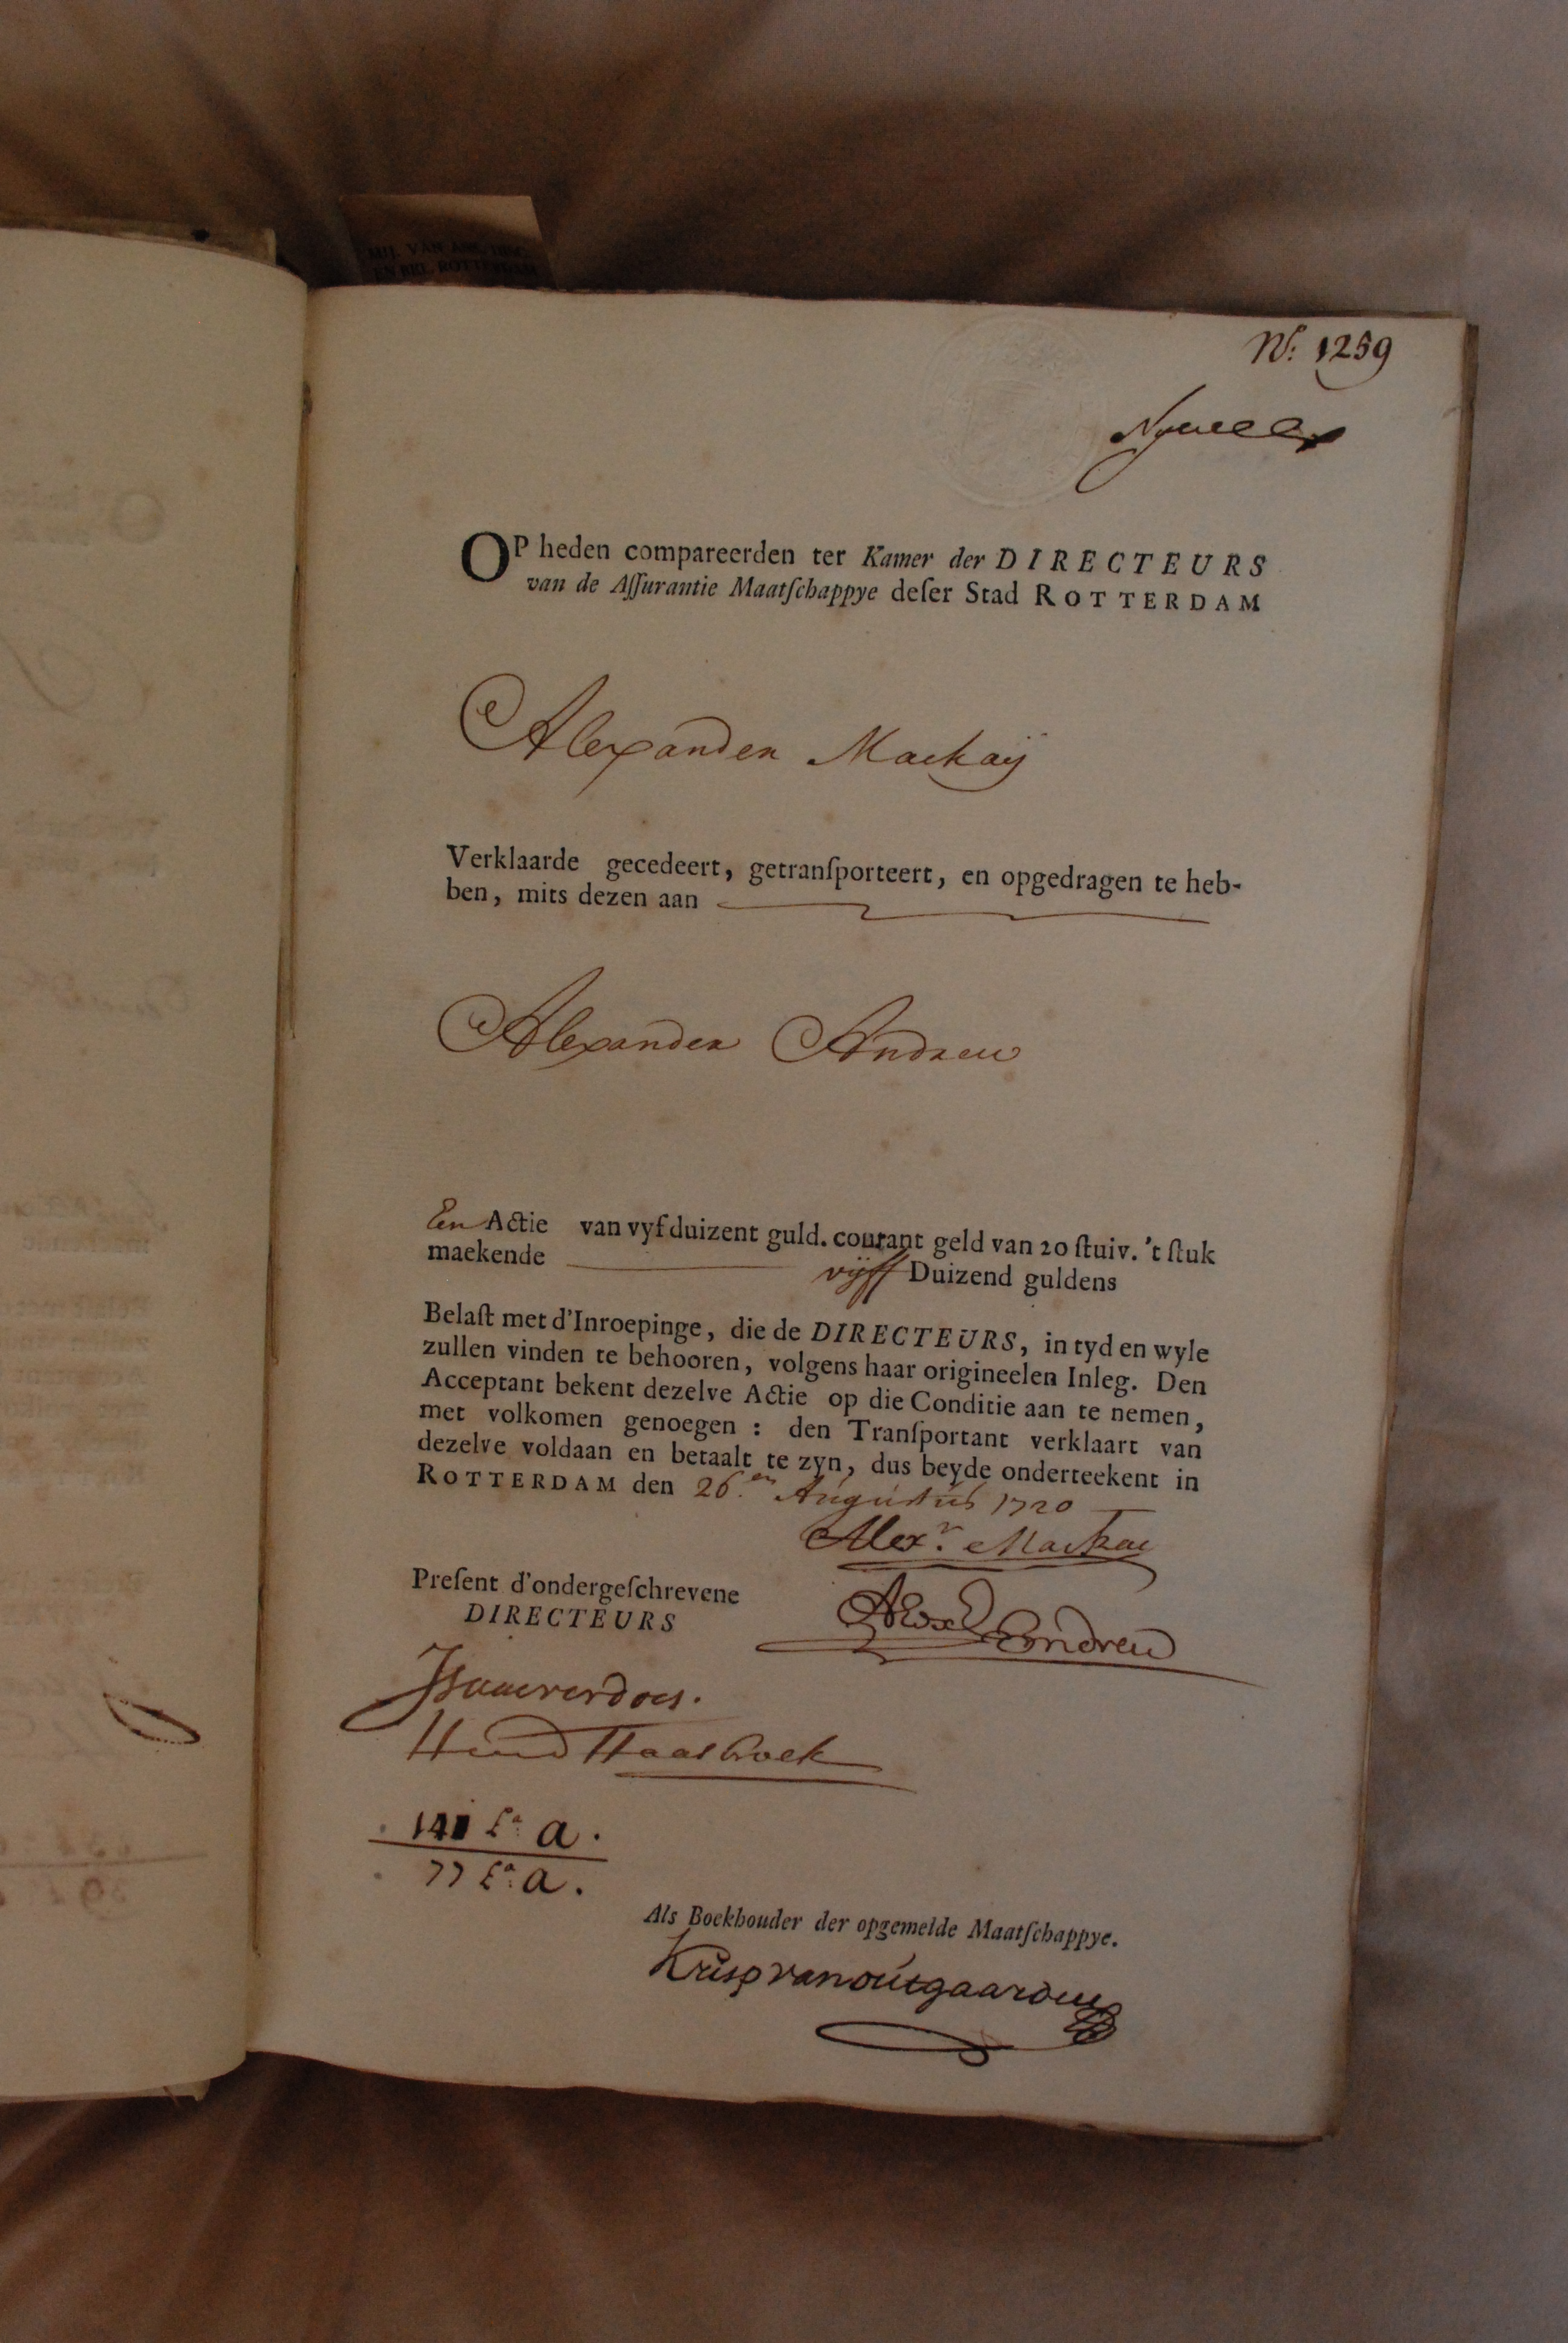 MIJ. VAN ASS. DISC.
EN BEL. ROTTERDAM
No: 1259
OP heden compareerden ter Kamer der DIRECTEURS
van de Aſſurantie Maatſchappye deſer Stad ROTTERDAM
Alexander Mackaij
Verklaarde gecedeert, getranſporteert, en opgedragen te heb-
ben, mits dezen aan
Alexander Andrew
Een Actie van vyfduizent guld. courant geld van 20 ſtuiv. 't ſtuk
maekende vijff Duizend guldens
Belaſt met d'Inroepinge, die de DIRECTEURS, in tyd en wyle
zullen vinden te behooren, volgens haar origineelen Inleg. Den
Acceptant bekent dezelve Actie op die Conditie aan te nemen,
met volkomen genoegen : den Tranſportant verklaart van
dezelve voldaan en betaalt te zyn, dus beyde onderteekent in
ROTTERDAM den 26.en Augustus 1720
Alexr. Mackae
Preſent d'ondergeſchrevene
DIRECTEURS
Alexr Andrew
Isaac verdoes.
Hend Haasbroek
La a.
77 La a.
Als Boekhouder der opgemelde Maatſchappye.
Krisp van outgaarden